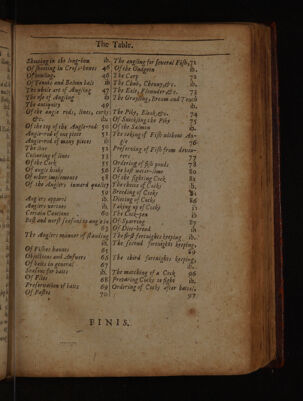 The Table.
Shooting in the long-bow ib.
Of shooting in Cross-bowes 46
Of bowling. 46
Of Tennis and Baloon ball ib
The whole art of Angling 47
The use of Angling ib
The antiquity 49
Of the angle rods, lines, corks
&c. ib.
Of the top of the Angle-rod 50
Angle-rod of one piece 51
Angle-rod of many pieces ib
The line 52
Colouring of lines 53
Of the Cork 55
Of angle hooks 56
Of other implements 58
Of the Anglers inward quality
59
Anglers apparel ib.
Anglers vertues ib
Certain Cautions 60
Best and worst seasons to angle in
63
The Anglers manner of standing
ib
Of Fishes haunts 65
Objections and Answers 65
Of baits in general 67
Seasons for baits ib.
Of Flies 68
Preservation of baits 69
Of Pastes 70
The angling for several Fish, 71
Of the Gudgeon ib.
The Carp 72
The Chub, Chevin, &c. ib.
The Eele, Flounder &c. 73
The Grayling, bream and Tench
ib.
The Pike, Bleak, &c. 74
Of Snickling the Pike 75
Of the Salmon ib.
The taking of Fish without Angle 76
Preserving of Fish from devourers 77
Ordering of fish ponds 78
The best water-lime 80
Of the fighting Cock 81
The choice of Cocks ib.
Breeding of Cocks
Dieting of Cocks 86
Taking up of Cocks
The Cock-pen ib
Of Sparring 87
Of Diet-bread ib
The first fortnights keeping ib.
The second fortnights keeping,
The third fortnights keeping,
ib.
The matching of a Cock 96
Preparing Cocks to fight ib.
Ordering of Cocks after battel,
97
FINIS.